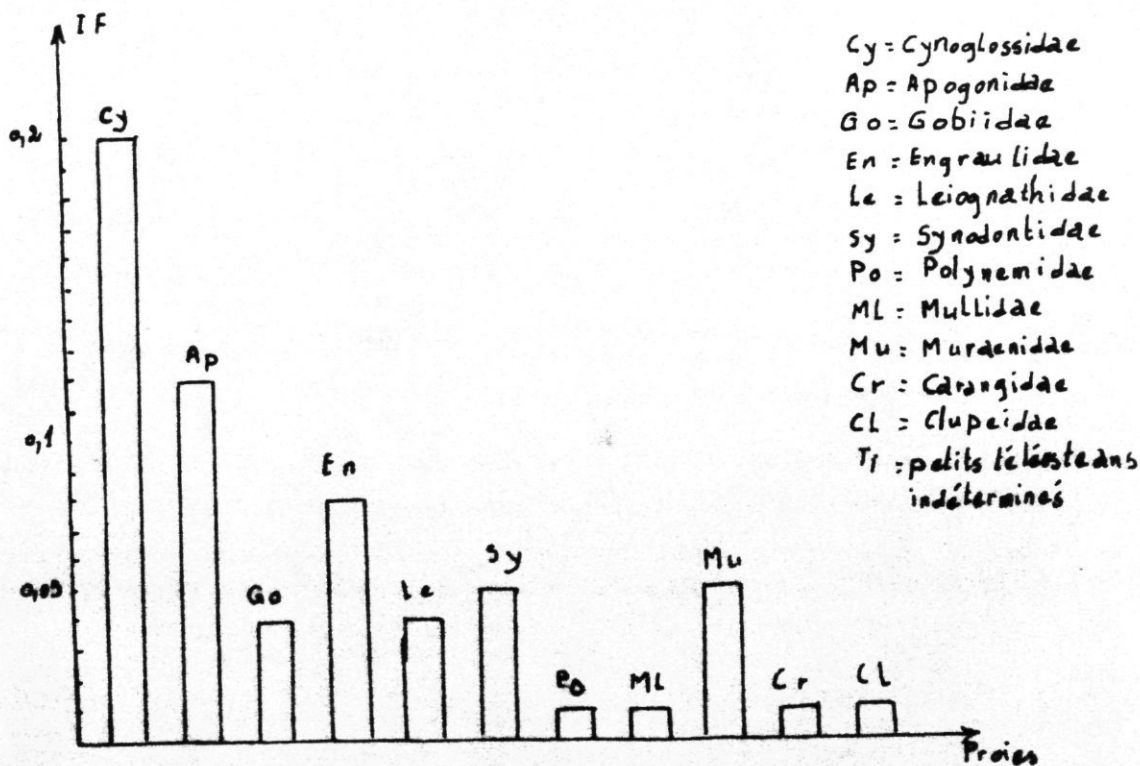 IF
Cy
0,2
Ap
0,1
En
Sy
Mu
0,05
Go
Le
Po
ML
Cr
CL
Proies
Cy = Cynoglossidae
Ap = Apogonidae
Go = Gobiidae
En = Engraulidae
Le = Leiognathidae
Sy = Synodontidae
Po = Polynemidae
ML = Mullidae
Mu = Muraenidae
Cr = Carangidae
CL = Clupeidae
Ti = petits téléosteans
indéterminés